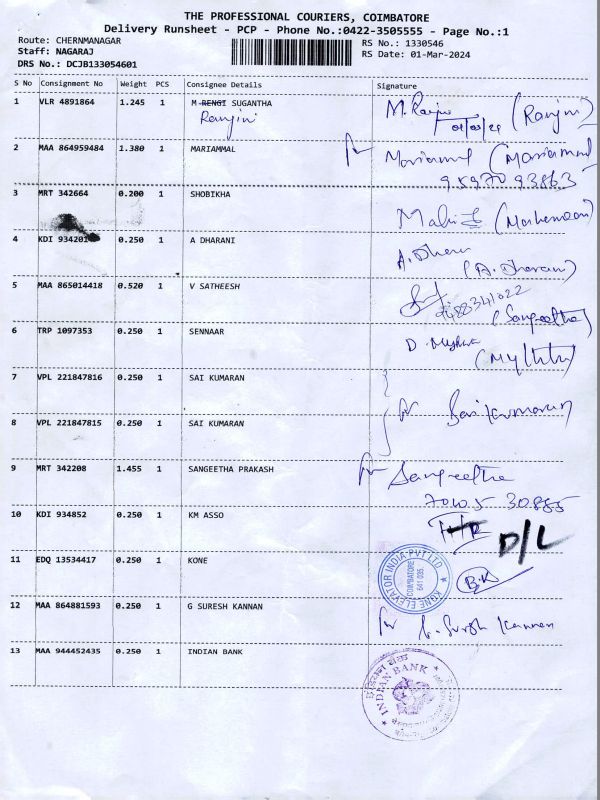 THE PROFESSIONAL COURIERS, COIMBATORE
Delivery Runsheet - PCP - Phone No.:0422-3505555 - Page No.:1
Route: CHERNMANAGAR
RS No.: 1330546
Staff: NAGARAJ
RS Date: 01-Mar-2024
DRS No.: DCJB133054601
S No Consignment No Weight PCS Consignee Details Signature
1 VLR 4891864 1.245 1 M RENGI SUGANTHA
Ranjini
(Ranjini)
2 MAA 864959484 1.380 1 MARIAMMAL
(Mariammal
95970 93863
3 MRT 342664 0.200 1 SHOBIKHA
4 KDI 934201 0.250 1 A DHARANI
A. Dharani
(A. Dharani)
5 MAA 865014418 0.520 1 V SATHEESH
9488341022
(Sangeetha)
6 TRP 1097353 0.250 1 SENNAAR
7 VPL 221847816 0.250 1 SAI KUMARAN
for Sai Kumaran
8 VPL 221847815 0.250 1 SAI KUMARAN
9 MRT 342208 1.455 1 SANGEETHA PRAKASH
for Sangeetha
70105 30885
10 KDI 934852 0.250 1 KM ASSO
D/L
11 EDQ 13534417 0.250 1 KONE
KONE ELEVATOR INDIA PVT LTD
COIMBATORE
641 035
B.K
12 MAA 864881593 0.250 1 G SURESH KANNAN
for G. Suresh Kannan
13 MAA 944452435 0.250 1 INDIAN BANK
INDIAN BANK